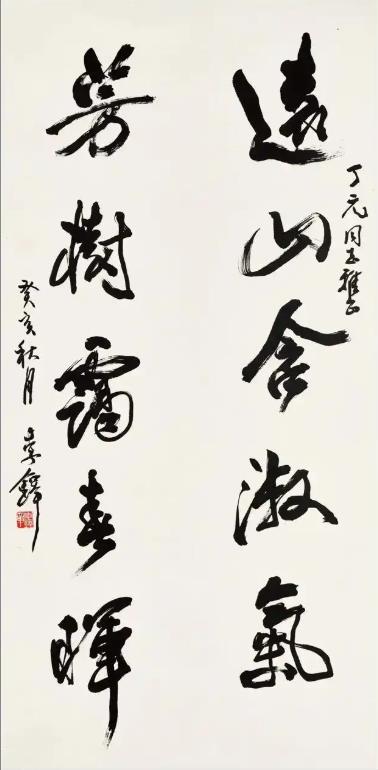 丁元同志雅正
遠山含淑氣
芳樹靄春暉
癸亥秋月 李鐸